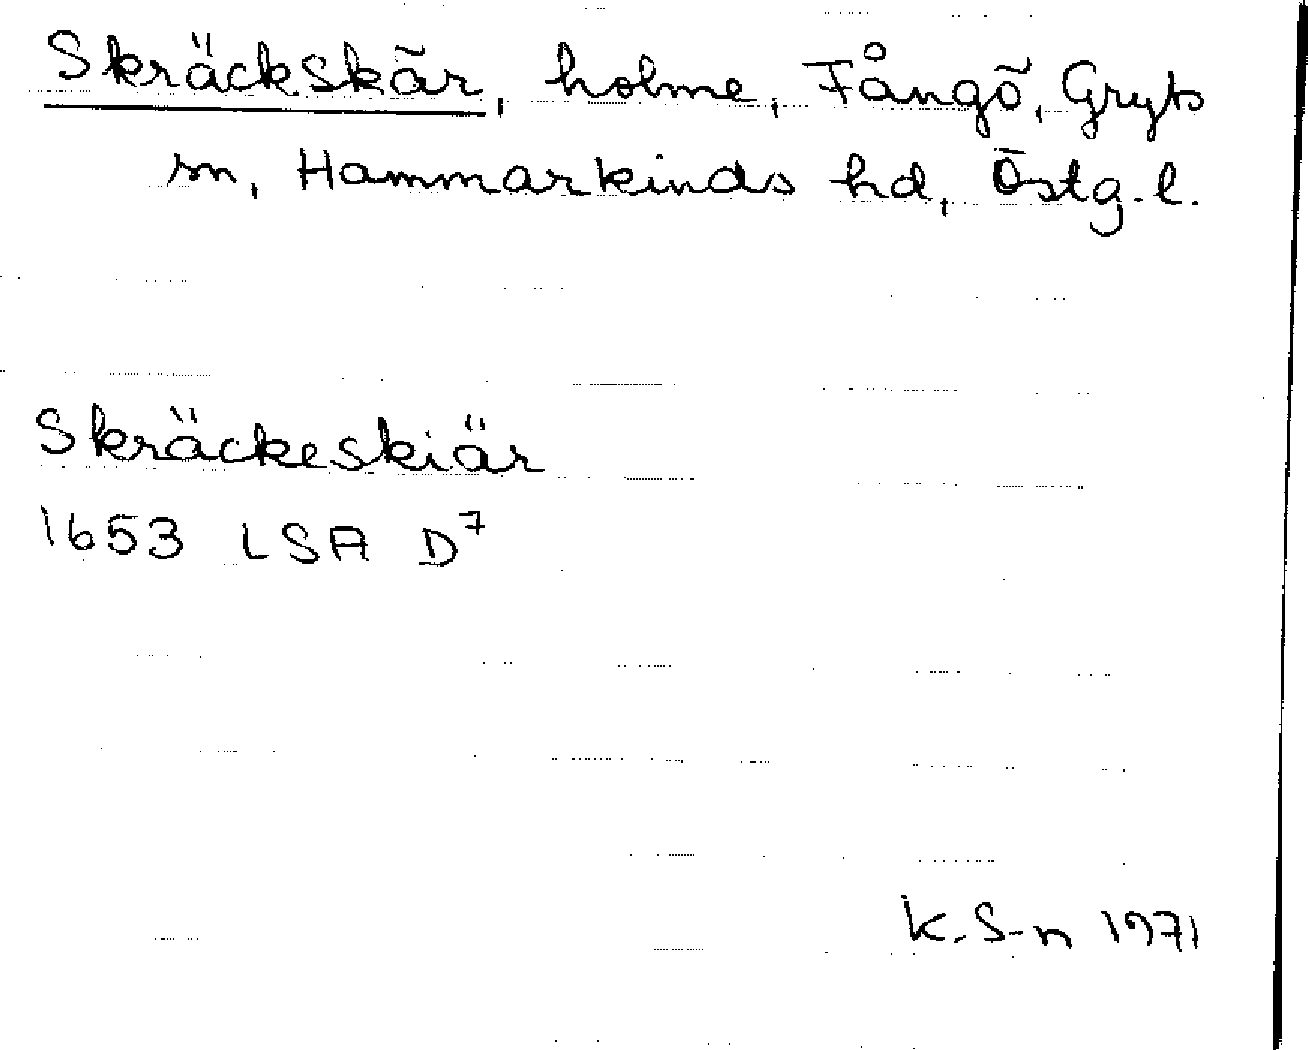 Skräckskär, holme, Fångö, Gryts
sn, Hammarkinds hd, Östg.l.
Skräckeskiär
1653 LSA D7
K.S-n 1971